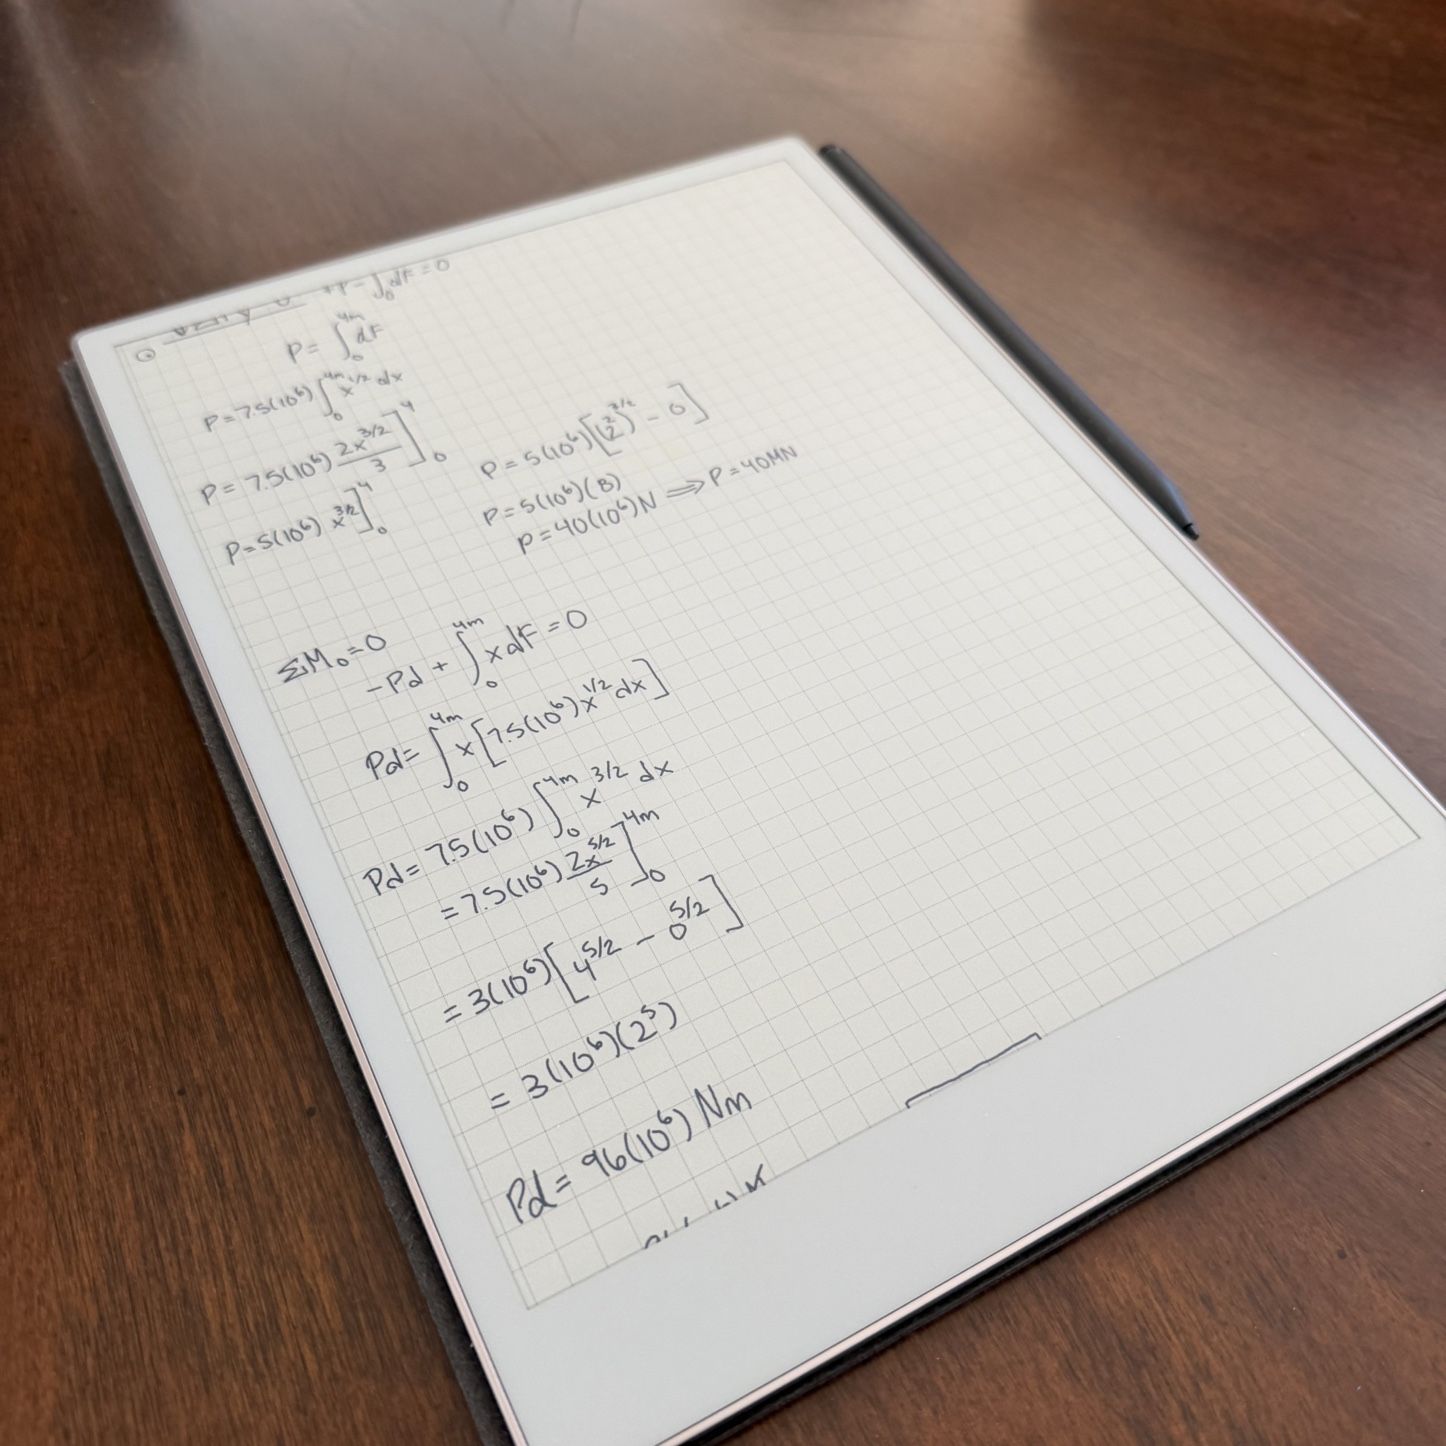 +P - ∫₀ dF = 0
P = ∫₀^4m dF
P = 7.5(10⁶) ∫₀^4m x^1/2 dx
P = 7.5(10⁶) 2x^3/2 / 3 ]₀⁴
P = 5(10⁶) x^3/2 ]₀⁴
P = 5(10⁶)[(2²)^3/2 - 0]
P = 5(10⁶)(8)
P = 40(10⁶)N ⟹ P = 40MN
ΣM₀ = 0
-Pd + ∫₀^4m x dF = 0
Pd = ∫₀^4m x[7.5(10⁶)x^1/2 dx]
Pd = 7.5(10⁶) ∫₀^4m x^3/2 dx
= 7.5(10⁶) 2x^5/2 / 5 ]₀^4m
= 3(10⁶)[4^5/2 - 0^5/2]
= 3(10⁶)(2⁵)
Pd = 96(10⁶) Nm